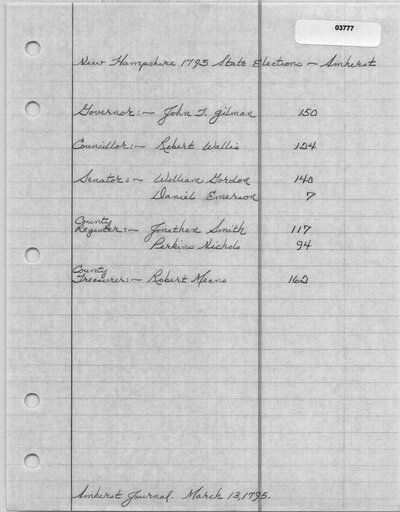 03777
New Hampshire 1795 State Elections - Amherst
Governor:- John T. Gilman 150
Councillor:- Robert Wallis 124
Senator:- William Gordon 140
Daniel Emerson 7
County
Register:- Jonathan Smith 117
Perkins Nichols 94
County
Treasurer:- Robert Means 162
Amherst Journal. March 13, 1795.